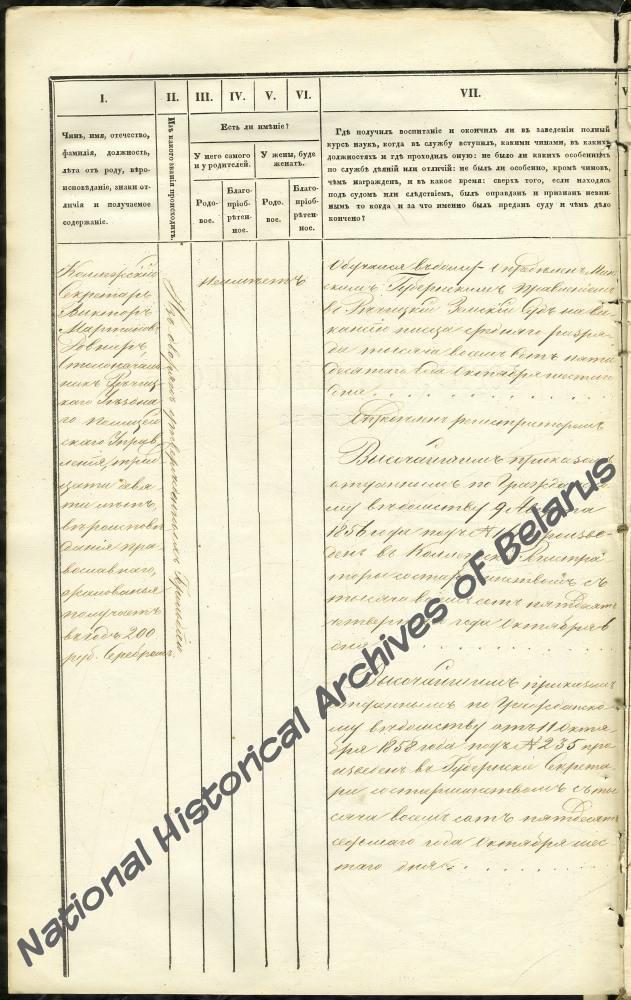 I.
II.
III.
IV.
V.
VI.
VII.
V
Чинъ, имя, отечество,
фамилія, должность,
лѣта отъ роду, вѣро-
исповѣданіе, знаки от-
личія и получаемое
содержаніе.
Изъ какого званія происходитъ.
Есть ли имѣніе?
У него самого
и у родителей.
У жены, буде
женатъ.
Родо-
вое.
Благо-
пріоб-
рѣтен-
ное.
Родо-
вое.
Благо-
пріоб-
рѣтен-
ное.
Гдѣ получилъ воспитаніе и окончилъ ли въ заведеніи полный
курсъ наукъ, когда въ службу вступилъ, какими чинами, въ какихъ
должностяхъ и гдѣ проходилъ оную: не было ли какихъ особенныхъ
по службѣ дѣяній или отличій: не былъ ли особенно, кромѣ чиновъ,
чѣмъ награжденъ, и въ какое время: сверхъ того, если находясь
подъ судомъ или слѣдствіемъ, былъ оправданъ и признанъ невин-
нымъ то когда и за что именно былъ преданъ суду и чѣмъ дѣло
кончено?
Коллежскій
Секретарь
Викторъ
Мартиновъ
Столоначаль
никъ Рѣчиц
каго Уѣздна
го Полицей
скаго Управ
ленія, трид
цати девя
ти лѣтъ,
вѣроисповѣ
данія пра
вославнаго,
жалованья
получаетъ
въ годъ 200
руб. Серебромъ.
Изъ дворянъ утвержденныхъ Герольдіею
не имѣетъ
Обучался въ дому. Опредѣленъ Мин
скимъ Губернскимъ Правленіемъ
въ Рѣчицкій Земскій Судъ на ва
кансію писца средняго разря
да тысяча восемьсотъ пяти
десятаго года Октября шестаго
дня . . .
Опредѣленъ регистраторомъ
Высочайшимъ приказомъ
отданнымъ по Гражданско
му вѣдомству 9 Августа
1856 года подъ № произве
денъ въ Коллежскіе Регистра
торы со старшинствомъ съ
тысяча восемьсотъ пятьдесятъ
четвертаго года Октября 6
дня . . .
Высочайшимъ приказомъ
отданнымъ по Гражданско
му вѣдомству отъ 11 Октя
бря 1858 года подъ № 235 про
изведенъ въ Губернскіе Секрета
ри со старшинствомъ съ ты
сяча восемьсотъ пятьдесятъ
седьмаго года Октября шес
таго дня . . .
National Historical Archives of Belarus